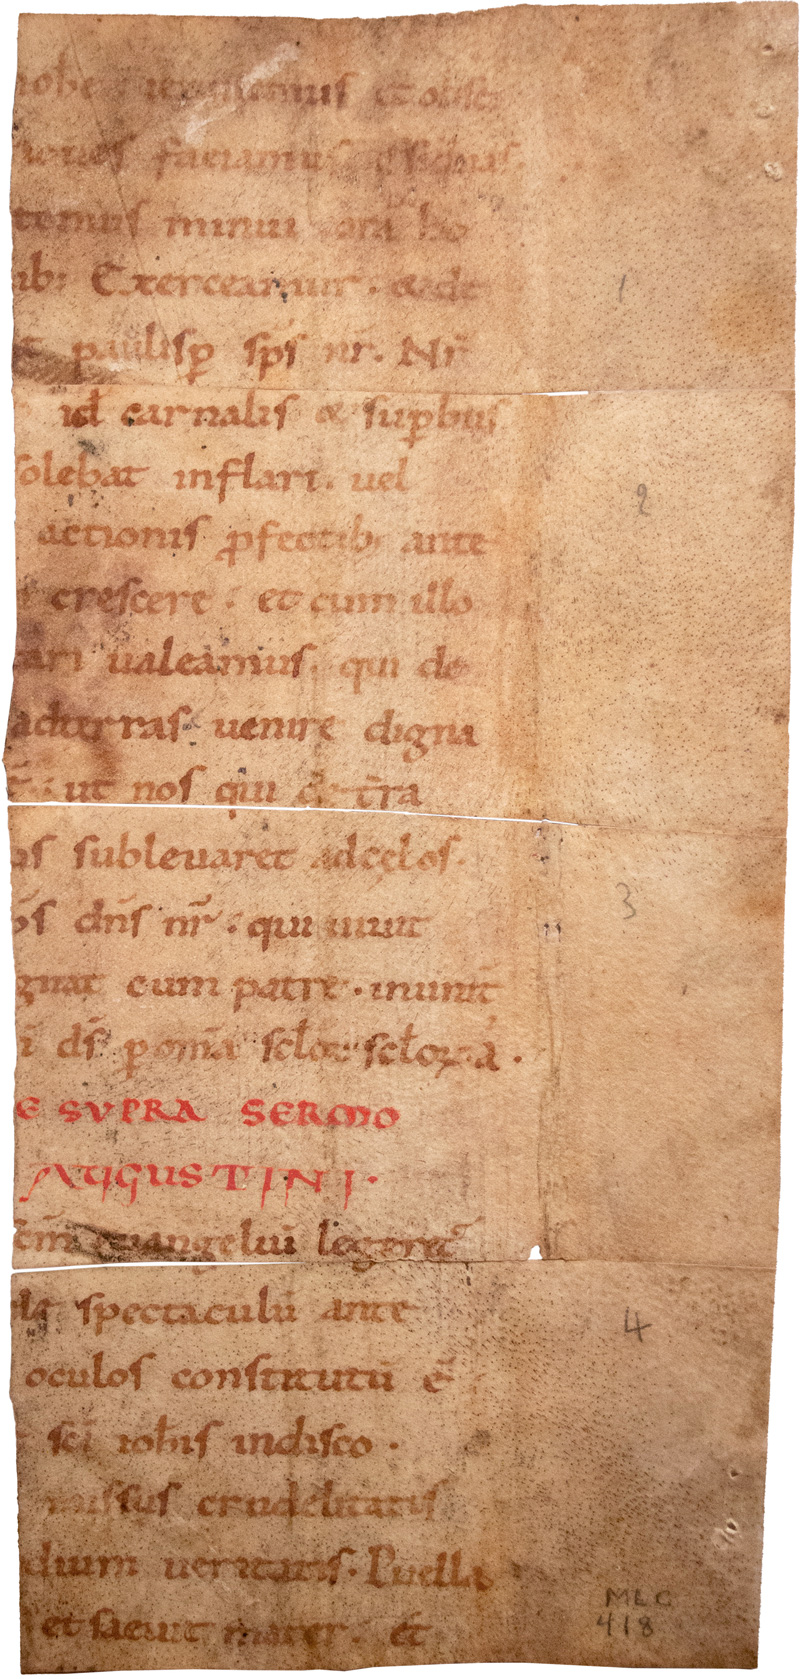 faciamus
minui
ib: Exerceamur. & de
paulisp sps nr. Nr
id carnalis & supbus
solebat inflari. uel
actionis pfectib; ante
crescere. et cum illo
tari ualeamus. qui de
adterras uenire digna
ut nos qui de tra
sublevaret adcęlos.
dns nr. qui uiuit
gnat cum patre. inunit
ds p omia sclor sclorum.
E SVPRA SERMO
AUGUSTINI.
euangeliu legeret
spectaculu ante
oculos constitutu ē
sci iohis indisco.
missus crudelitatis
dium ueritatis. Puella
et saeuit mater. et
1
2
3
4
MLC
418